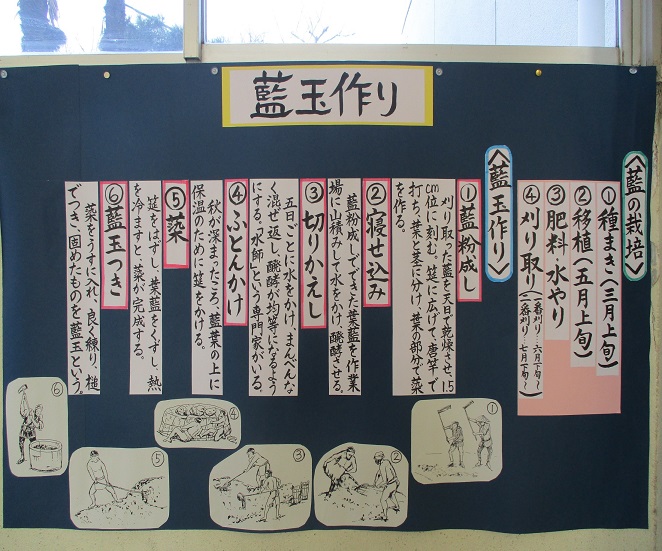 藍玉作り
〈藍の栽培〉
①種まき(三月上旬)
②移植(五月上旬)
③肥料・水やり
④刈り取り(一番刈り・六月下旬~
二番刈り・七月下旬~)
〈藍玉作り〉
①藍粉成し
刈り取った藍を天日で乾燥させ、1.5
cm位に刻む。筵に広げて唐竿で
打ち、葉と茎に分け、葉の部分で蒅
を作る。
②寝せ込み
藍粉成しでできた葉藍を作業
場に山積みして水をかけ醗酵させる。
③切りかえし
五日ごとに水をかけ、まんべんな
く混ぜ返し、醗酵が均等になるよう
にする。「水師」という専門家がいる。
④ふとんかけ
秋が深まったころ、藍葉の上に
保温のために筵をかける。
⑤蒅
筵をはずし、葉藍をくずし、熱
を冷ますと、蒅が完成する。
⑥藍玉つき
蒅をうすに入れ、良く練り、槌
でつき、固めたものを藍玉という。
①
②
③
④
⑤
⑥